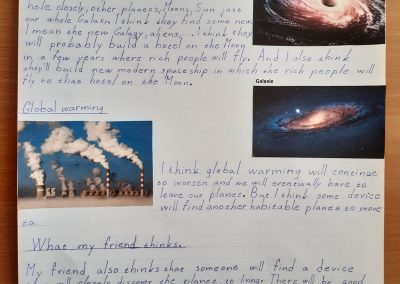 hole closely, other planets, Moons, Sun just
our whole Galaxy. I think they find some new
I mean the new Galaxy, aliens,.. I think they
will probably build a hotel on the Moon
in a few years where rich people will fly. And I also think
they'll build new modern spaceship in which the rich people will
fly to that hotel on the Moon.
Galaxie
Global warming
I think global warming will continue
to worsen and we will eventually have to
leave our planet. But I think some device
will find another habitable planet to move
to.
What my friend thinks.
My friend also thinks that someone will find a device
closely discover the planet to living. There will be good